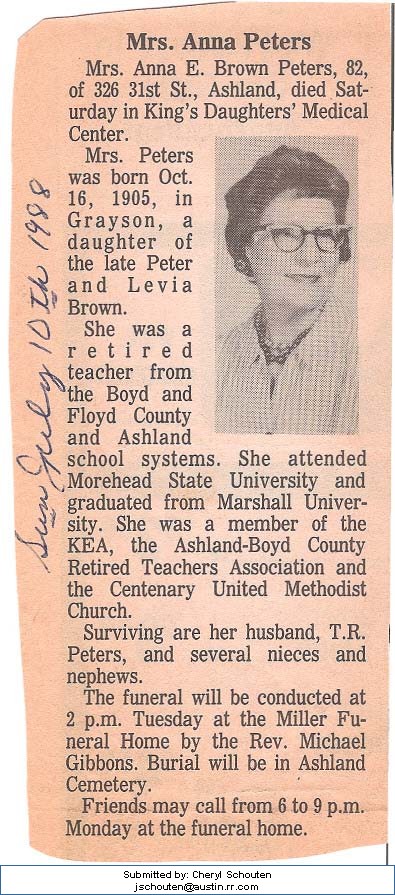 Mrs. Anna Peters
Mrs. Anna E. Brown Peters, 82,
of 326 31st St., Ashland, died Sat-
urday in King's Daughters' Medical
Center.
Mrs. Peters
was born Oct.
16, 1905, in
Grayson, a
daughter of
the late Peter
and Levia
Brown.
She was a
retired
teacher from
the Boyd and
Floyd County
and Ashland
school systems. She attended
Morehead State University and
graduated from Marshall Univer-
sity. She was a member of the
KEA, the Ashland-Boyd County
Retired Teachers Association and
the Centenary United Methodist
Church.
Surviving are her husband, T.R.
Peters, and several nieces and
nephews.
The funeral will be conducted at
2 p.m. Tuesday at the Miller Fu-
neral Home by the Rev. Michael
Gibbons. Burial will be in Ashland
Cemetery.
Friends may call from 6 to 9 p.m.
Monday at the funeral home.
Sun July 10th 1988
Submitted by: Cheryl Schouten
jschouten@austin.rr.com